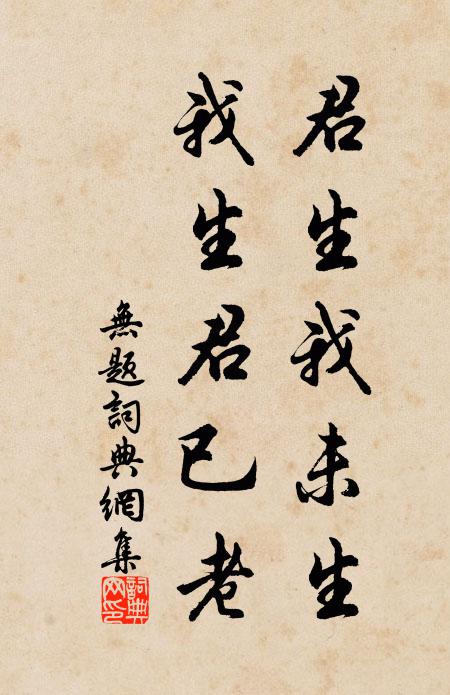 君生我未生
我生君已老
無题詞典網集
詞典网印